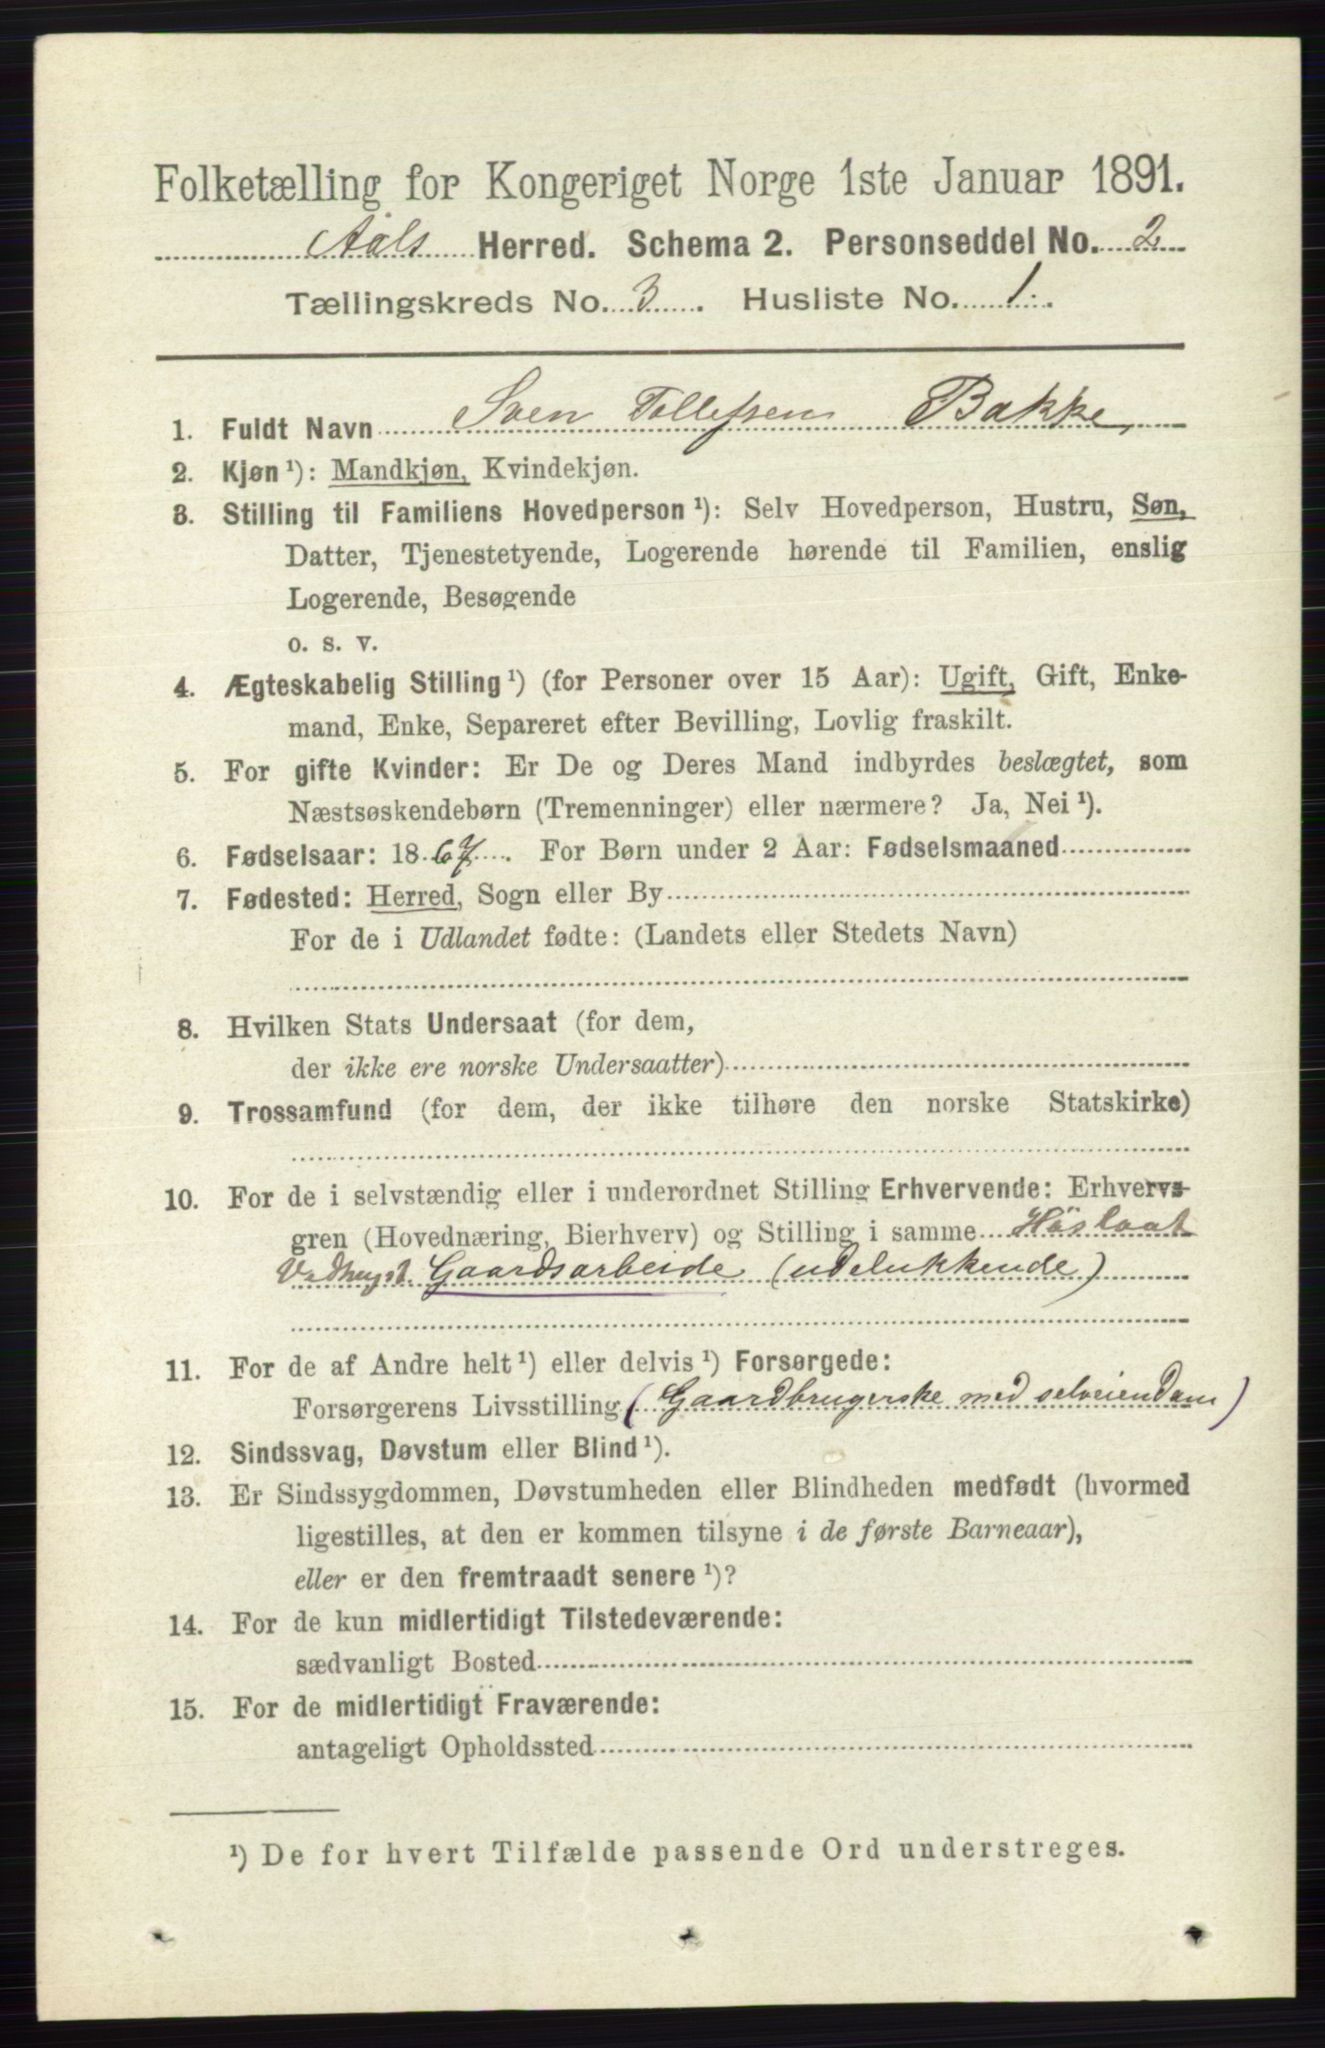 Folketælling for Kongeriget Norge 1ste Januar 1891.
Aals Herred. Schema 2. Personseddel No. 2
Tællingskreds No. 3. Husliste No. 1.
1. Fuldt Navn Sven Tollefsen Bakke,
2. Kjøn ¹): Mandkjøn, Kvindekjøn.
3. Stilling til Familiens Hovedperson ¹): Selv Hovedperson, Hustru, Søn,
Datter, Tjenestetyende, Logerende hørende til Familien, enslig
Logerende, Besøgende
o. s. v.
4. Ægteskabelig Stilling ¹) (for Personer over 15 Aar): Ugift, Gift, Enke-
mand, Enke, Separeret efter Bevilling, Lovlig fraskilt.
5. For gifte Kvinder: Er De og Deres Mand indbyrdes beslægtet, som
Næstsøskendebørn (Tremenninger) eller nærmere? Ja, Nei ¹).
6. Fødselsaar: 1867. For Børn under 2 Aar: Fødselsmaaned
7. Fødested: Herred, Sogn eller By
For de i Udlandet fødte: (Landets eller Stedets Navn)
8. Hvilken Stats Undersaat (for dem,
der ikke ere norske Undersaatter)
9. Trossamfund (for dem, der ikke tilhøre den norske Statskirke)
10. For de i selvstændig eller i underordnet Stilling Erhvervende: Erhvervs-
gren (Hovednæring, Bierhverv) og Stilling i samme Höslaat
Vedhugst Gaardsarbeide (udelukkende)
11. For de af Andre helt ¹) eller delvis ¹) Forsørgede:
Forsørgerens Livsstilling (Gaardbrugerske med selveiendom)
12. Sindssvag, Døvstum eller Blind ¹).
13. Er Sindssygdommen, Døvstumheden eller Blindheden medfødt (hvormed
ligestilles, at den er kommen tilsyne i de første Barneaar),
eller er den fremtraadt senere ¹)?
14. For de kun midlertidigt Tilstedeværende:
sædvanligt Bosted
15. For de midlertidigt Fraværende:
antageligt Opholdssted
¹) De for hvert Tilfælde passende Ord understreges.